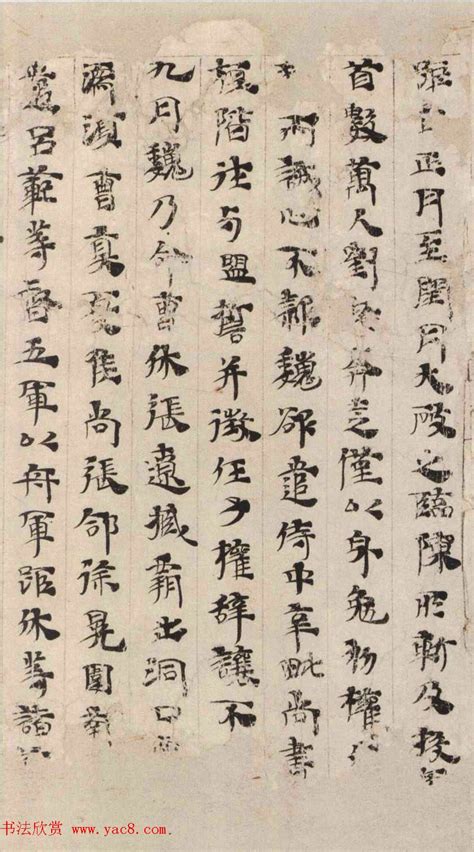 距之正月至閏月大破之臨陳所斬及投
首數萬人劉俻奔走僅以身免初權
外誠心不款魏欲遣侍中辛毗尚書
桓階往与盟誓并徵任子權辞讓不
九月魏乃命曹休張遼臧霸出洞口
濡須曹真夏侯尚張郃徐晃圍南
遣呂範等督五軍以舟軍距休等諸
书法欣赏 www.yac8.com